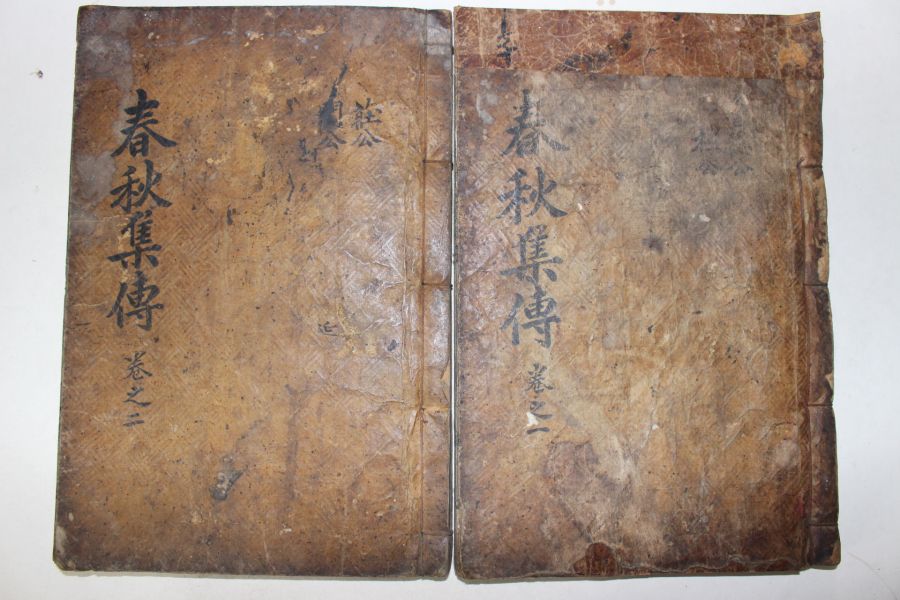 春秋集傳 卷之二
莊公
公
春秋集傳 卷之一
公
公